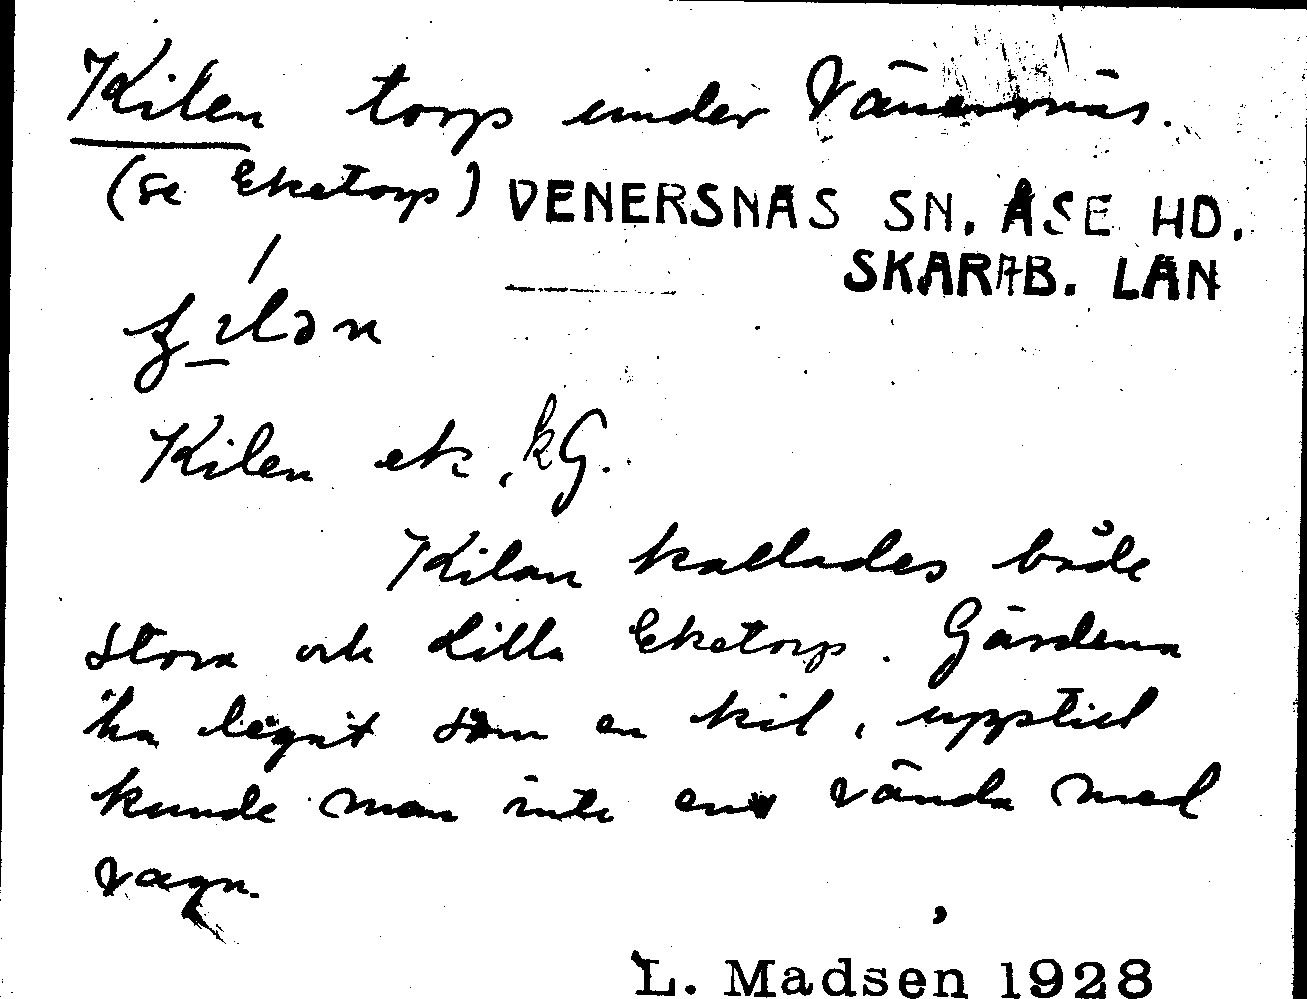 Kilen torp under Vänersnäs.
(se Eketorp) VENERSNÄS SN. ÅSE HD.
SKARAB. LÄN
Kilen ek, kG.
Kilan kallades både
Stora och Lilla Eketorp. Gårdena
ha legat som en kil, uppstid
kunde man inte ens vända med
vagn.
L. Madsen 1928